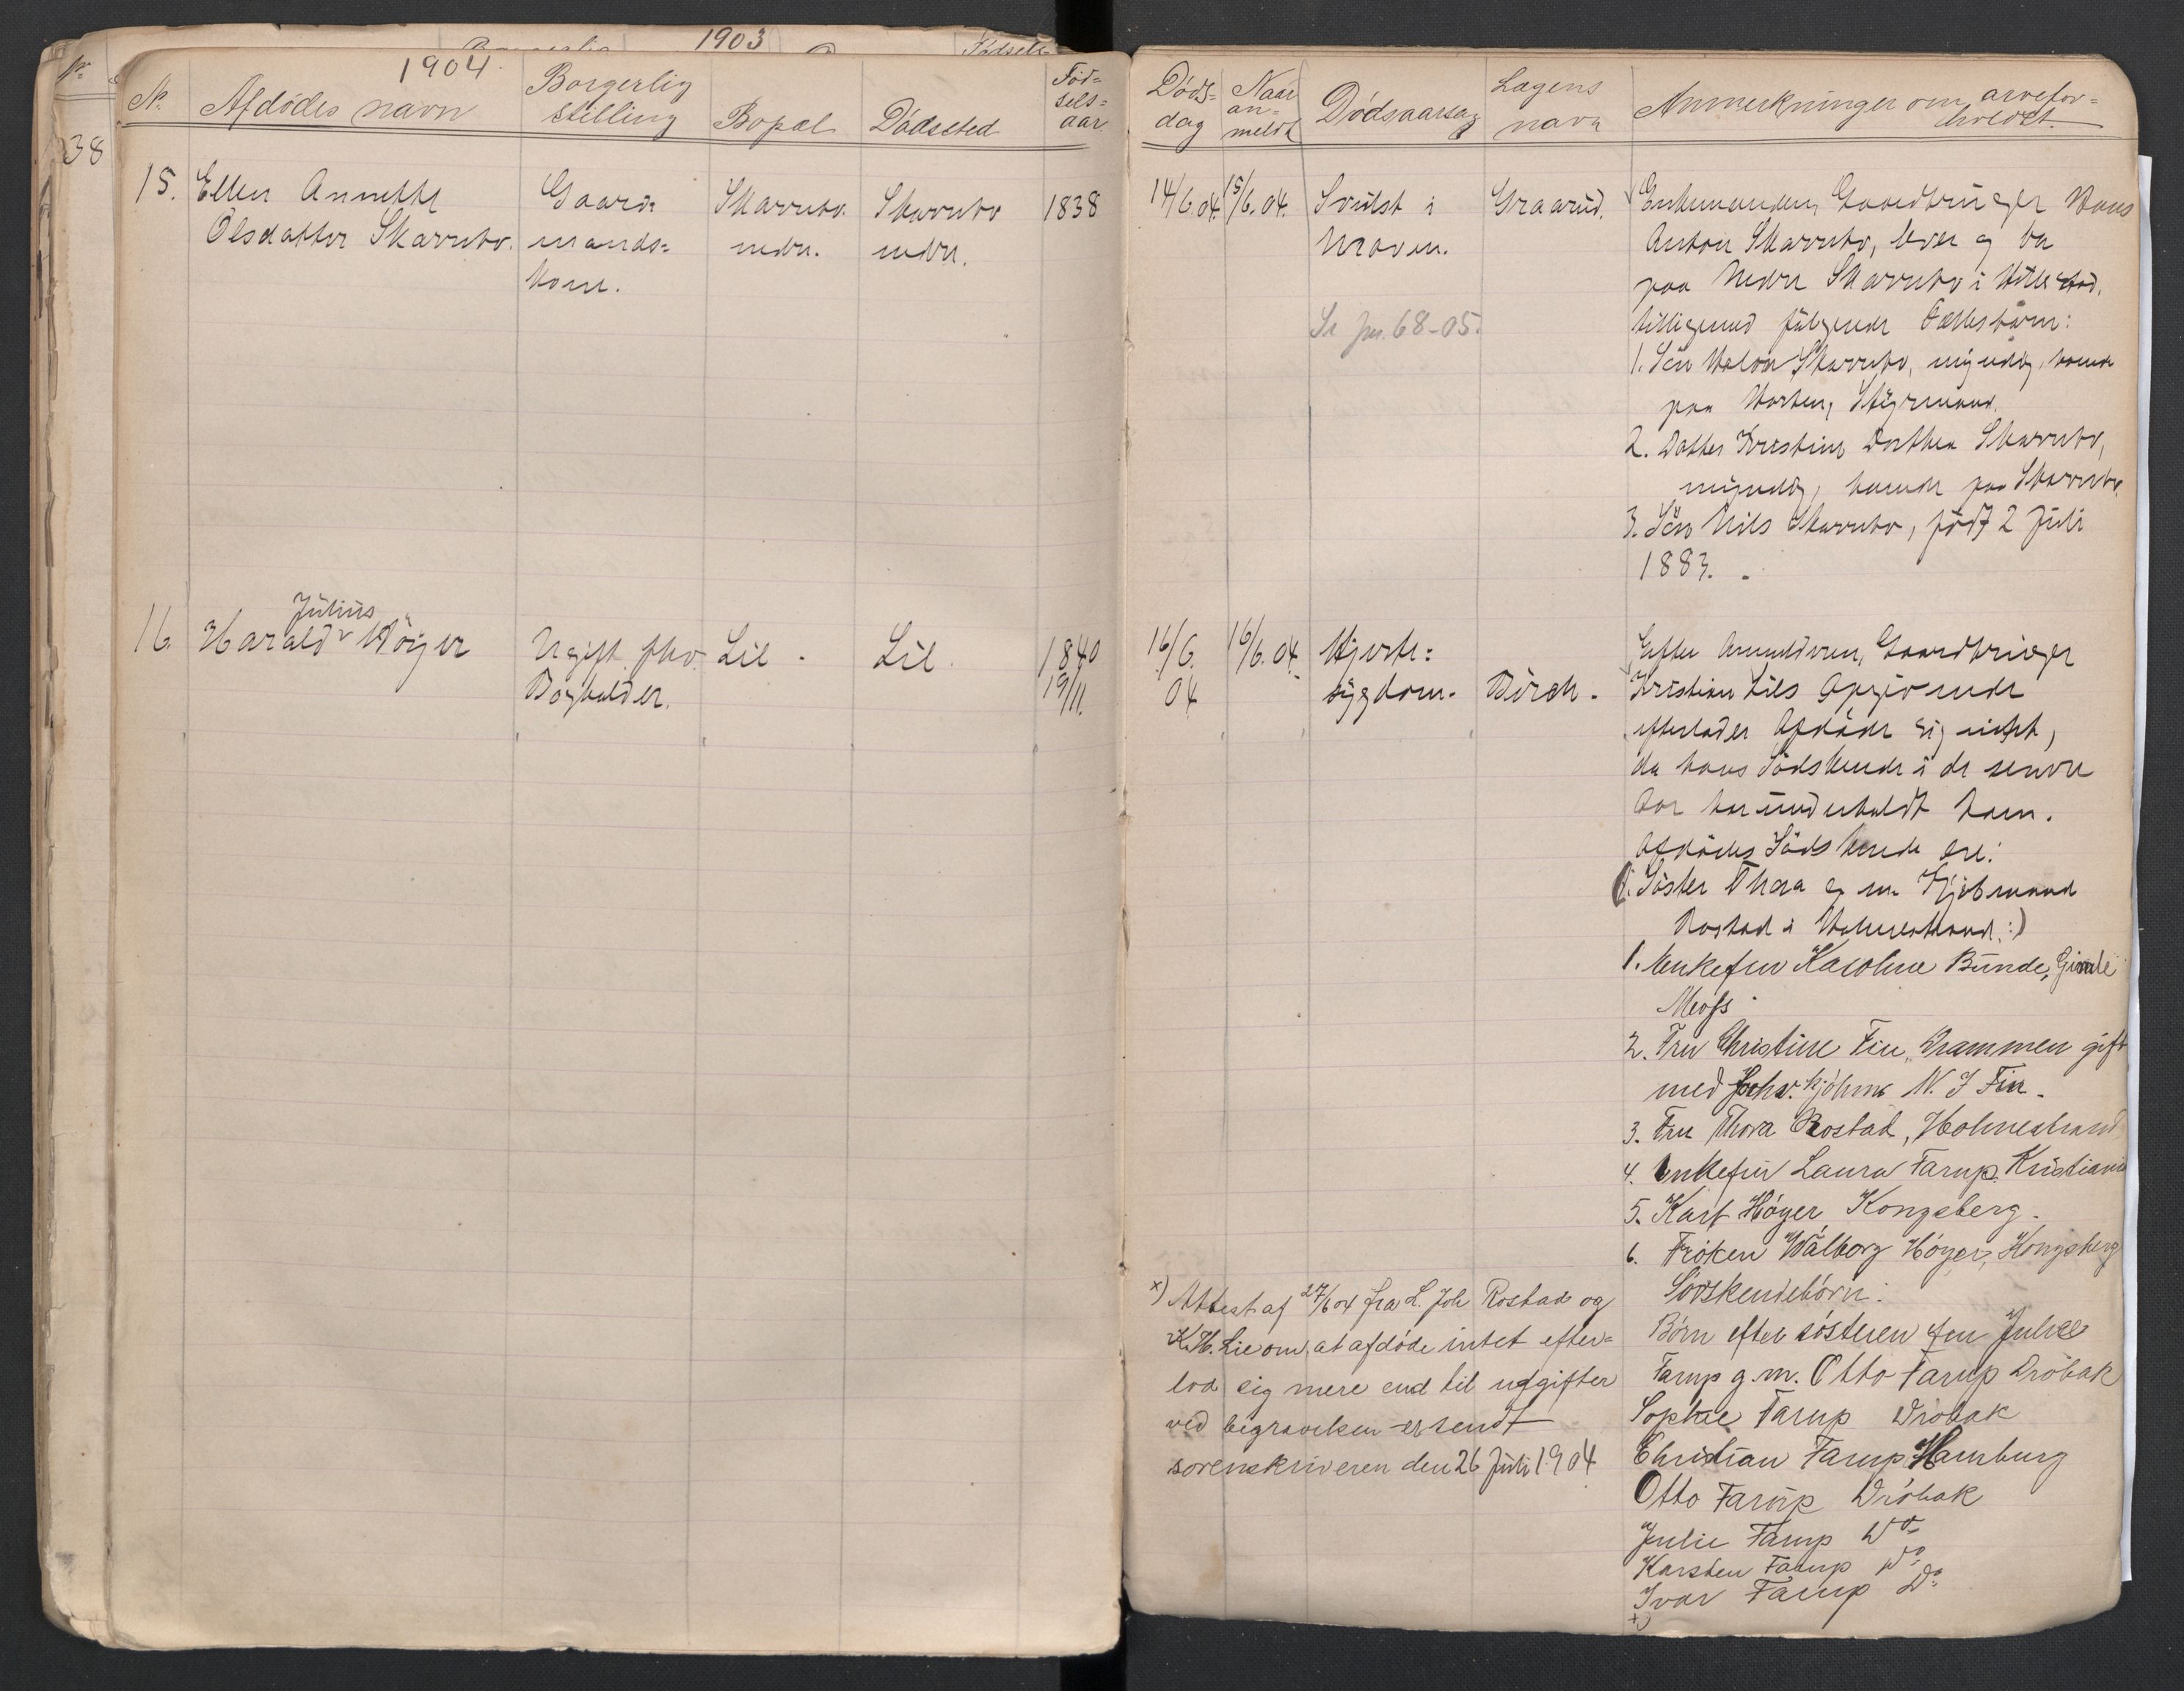 1903
1904.
No.
Afdödes navn
Borgerlig stilling
Bopæl
Dödssted
Fød=
sels=
aar
Døds=
dag
Naar
an=
meldt
Dødsaarsag
Lægens
navn
Anmerkninger om arvefor=
holdet.
38
15.
Ellen Annette
Olsdatter Skarrebo.
Gaard=
mands=
kone.
Skarrebo
nedre.
Skarrebo
nedre.
1838
14/6.04.
15/6.04.
Svulst i
Maven.
Se jnr. 68-05.
Graarud.
Enkemanden, Gaardbruger Hans
Anton Skarrebo, lever og bor
paa Nedre Skarrebo i Hillestad,
tilligemed følgende Fællesbörn:
1. Sön Halvor Skarrebo, myndig, boende
paa Horten, Styrmand.
2. Datter Kristine Dorthea Skarrebo,
myndig, boende paa Skarrebo.
3. Sön Nils Skarrebo, födt 2 Juli
1883.
16.
Julius
Harald Höyer
Ugift fhv.
Bogholder.
Lie
Lie
1840
19/11.
16/6.
04
16/6.04.
Hjerte=
sygdom.
Börch.
Efter Anmelderen, Gaardbruger
Kristian Lies Opgivende
efterlader Afdöde sig intet,
da hans Södskende i de senere
Aar har underholdt ham.
Afdödes Södskende ere:
(1. Söster Thora g. m. Kjöbmand
Rostad i Holmestrand.:)
1. Enkefru Karoline Bunde, Gimle
Moss
2. Fru Christine Fin, Drammen gift
med fhv. kjöbm. N. J Fin.
3. Fru Thora Rostad, Holmestrand
4. Enkefru Laura Farup, Kristiania
5. Karl Höyer Kongsberg.
6. Fröken Valborg Höyer, Kongsberg
Södskendebörn:
Börn efter sösteren fru Julie
Farup g.m. Otto Farup Dröbak
Sophie Farup Dröbak
Christian Farup Hamburg
Otto Farup Dröbak
Julie Farup Do
Karsten Farup Do
Ivar Farup Do
+)
x) Attest af 27/6 04 fra L. Joh Rostad og
K. H. Lie om, at afdöde intet efter=
lod sig mere end til udgifter
ved begravelsen er sendt
sorenskriveren den 26 Juli 1904